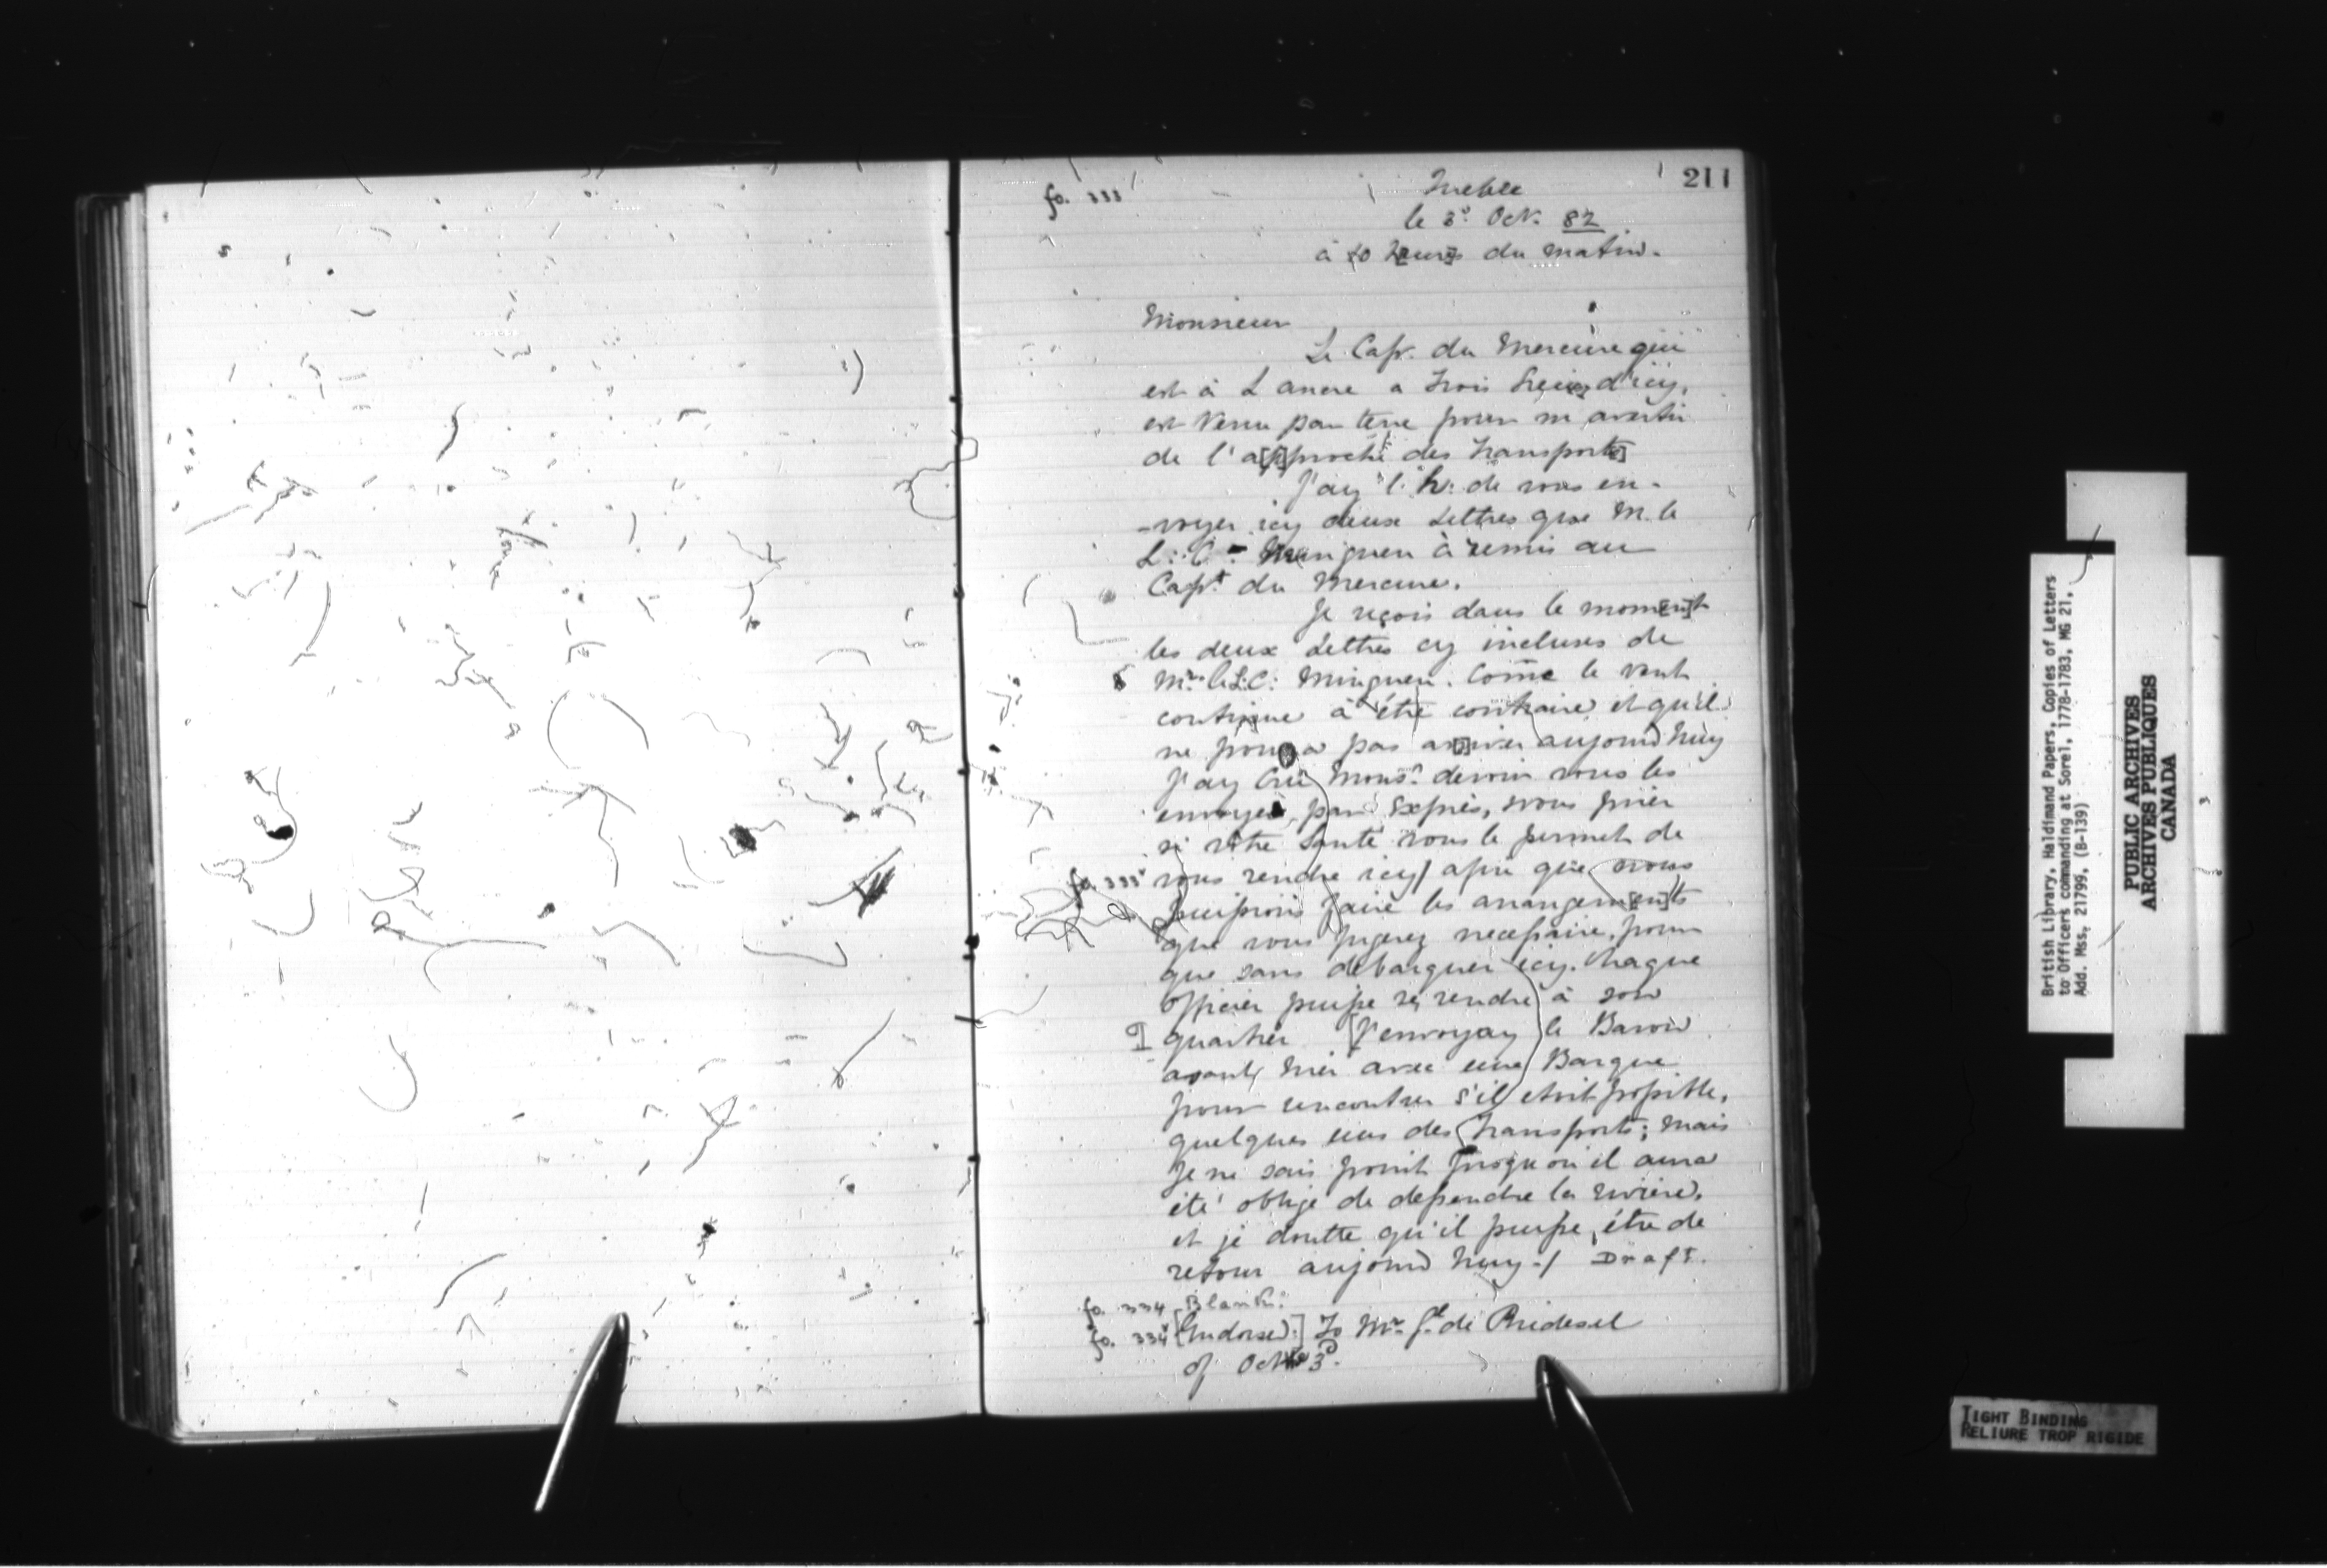 211
fo. 333
Quebec
le 3e Oct. 82
à 10 h[eure]s du matin.
Monsieur
Le Capt. du Mercure qui
est à L ancre a trois lieües d'icy,
est Venu par terre pour m avertir
de l'a[p]proche des transport[s]
J'ay l'h: de vous en-
-voyer icy deux Lettres que M. le
L: C: Minguen à remis au
Capt. du Mercure.
Je reçois dans le mom[en]t
les deux Lettres cy incluses de
Mr. le L:C: Minguen. Come le vent
continue à être contraire et qu'il
ne pourra pas arriver aujourd huy
J'ay Crû Monsr. devoir vous les
envoyer par Exprès, vous prier
si vôtre Santé vous le permet de
fo. 333v vous rendre icy afin que nous
puissions faire les arrangem[en]ts
que vous jugerez necessaire, pour
que sans débarquer icy. Chaque
Officier puisse se rendre à son
quartier [J'envoyay le Baron
avant hier avec une Barque
pour rencontrer s'il etoit possible,
quelques uns des transports; mais
Je ne sais point jusqu ou il aura
été oblige de descendre la riviere,
et je doutte qu'il puisse être de
retour aujourd huy./ Draft.
fo. 334 [Blank.]
fo. 334v [Endorsed:] To Mr. Gl. de Riedesel
of Octbre 3d.
British Library, Haldimand Papers, Copies of Letters
to Officers commanding at Sorel, 1778-1783, MG 21,
Add. Mss. 21799, (B-139)
PUBLIC ARCHIVES
ARCHIVES PUBLIQUES
CANADA
TIGHT BINDING
RELIURE TROP RIGIDE